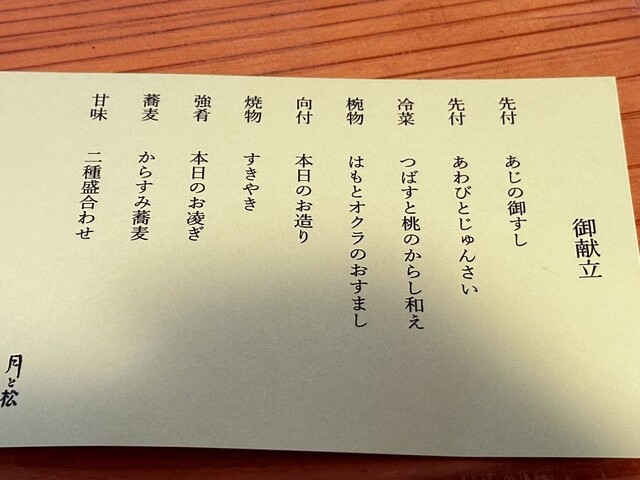 御献立
先付 あじの御すし
先付 あわびとじゅんさい
冷菜 つばすと桃のからし和え
椀物 はもとオクラのおすまし
向付 本日のお造り
焼物 すきやき
強肴 本日のお凌ぎ
蕎麦 からすみ蕎麦
甘味 二種盛合わせ
月と松